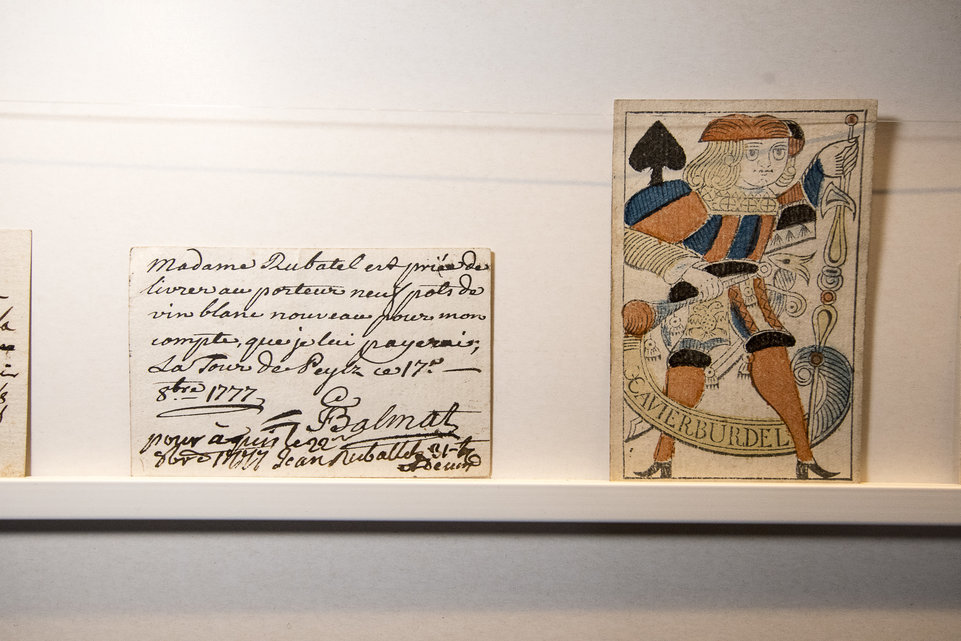 Madame Rubatel est priée de
livrer au porteur neuf pots de
vin blanc nouveau pour mon
compte, que je lui payerai,
La Tour de Peylz ce 17.e
8bre 1777
GBalmat
pour à quit le
8bre 1777 Jean Ruballe
CAVIERBURDEL